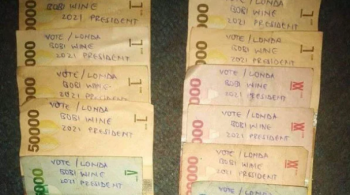 VOTE / LONDA
BOBI WINE
2021 PRESIDENT
VOTE / LONDA
BOBI WINE
2021 PRESIDENT
VOTE / LONDA
BOBI WINE
2021 PRESIDENT
50000
VOTE / LONDA
BOBI WINE
2021 PRESIDENT
VOTE / LONDA
BOBI WINE
2021 PRESIDENT
2021 PRESIDENT
VOTE / LONDA
BOBI WINE
2021 PRESIDENT
VOTE / LONDA
BOBI WINE
2021 PRESIDENT
VOTE / LONDA
BOBI WINE
2021 PRESIDENT
VOTE / LONDA
BOBI WINE
2021 PRESIDENT